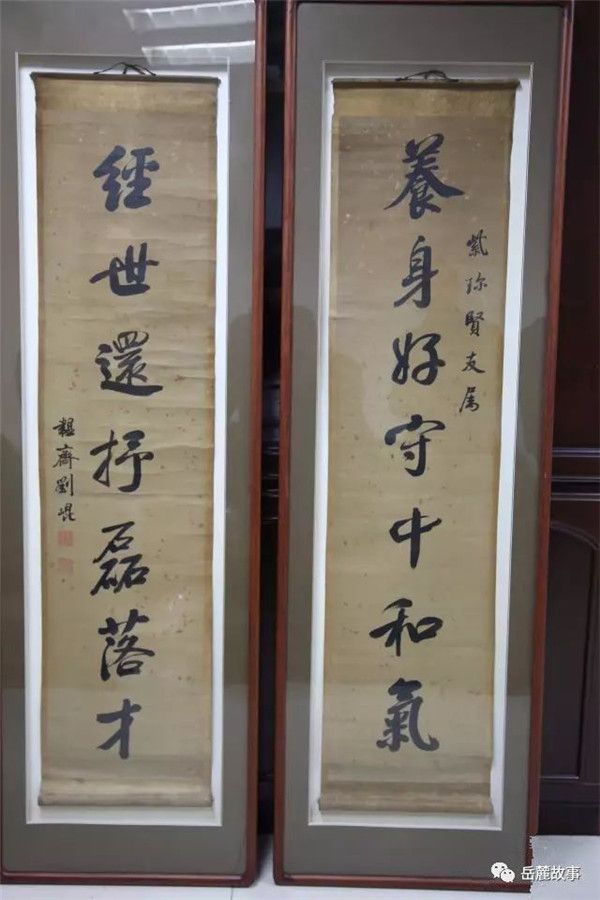 養身好守中和氣
紫珎賢友属
經世還抒磊落才
韞齋劉崐
岳麓故事